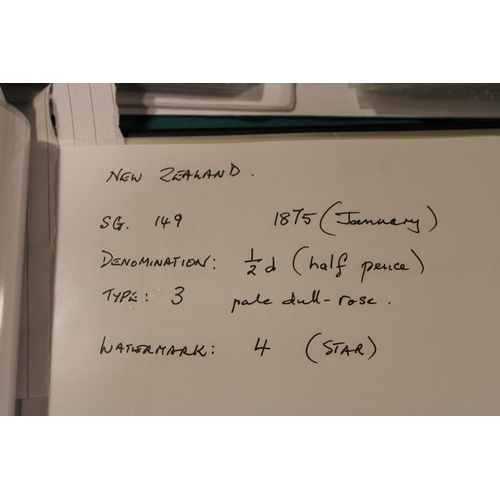 NEW ZEALAND.
SG. 149 1875 (January)
DENOMINATION: ½d (half pence)
TYPE: 3 pale dull-rose.
WATERMARK: 4 (STAR)